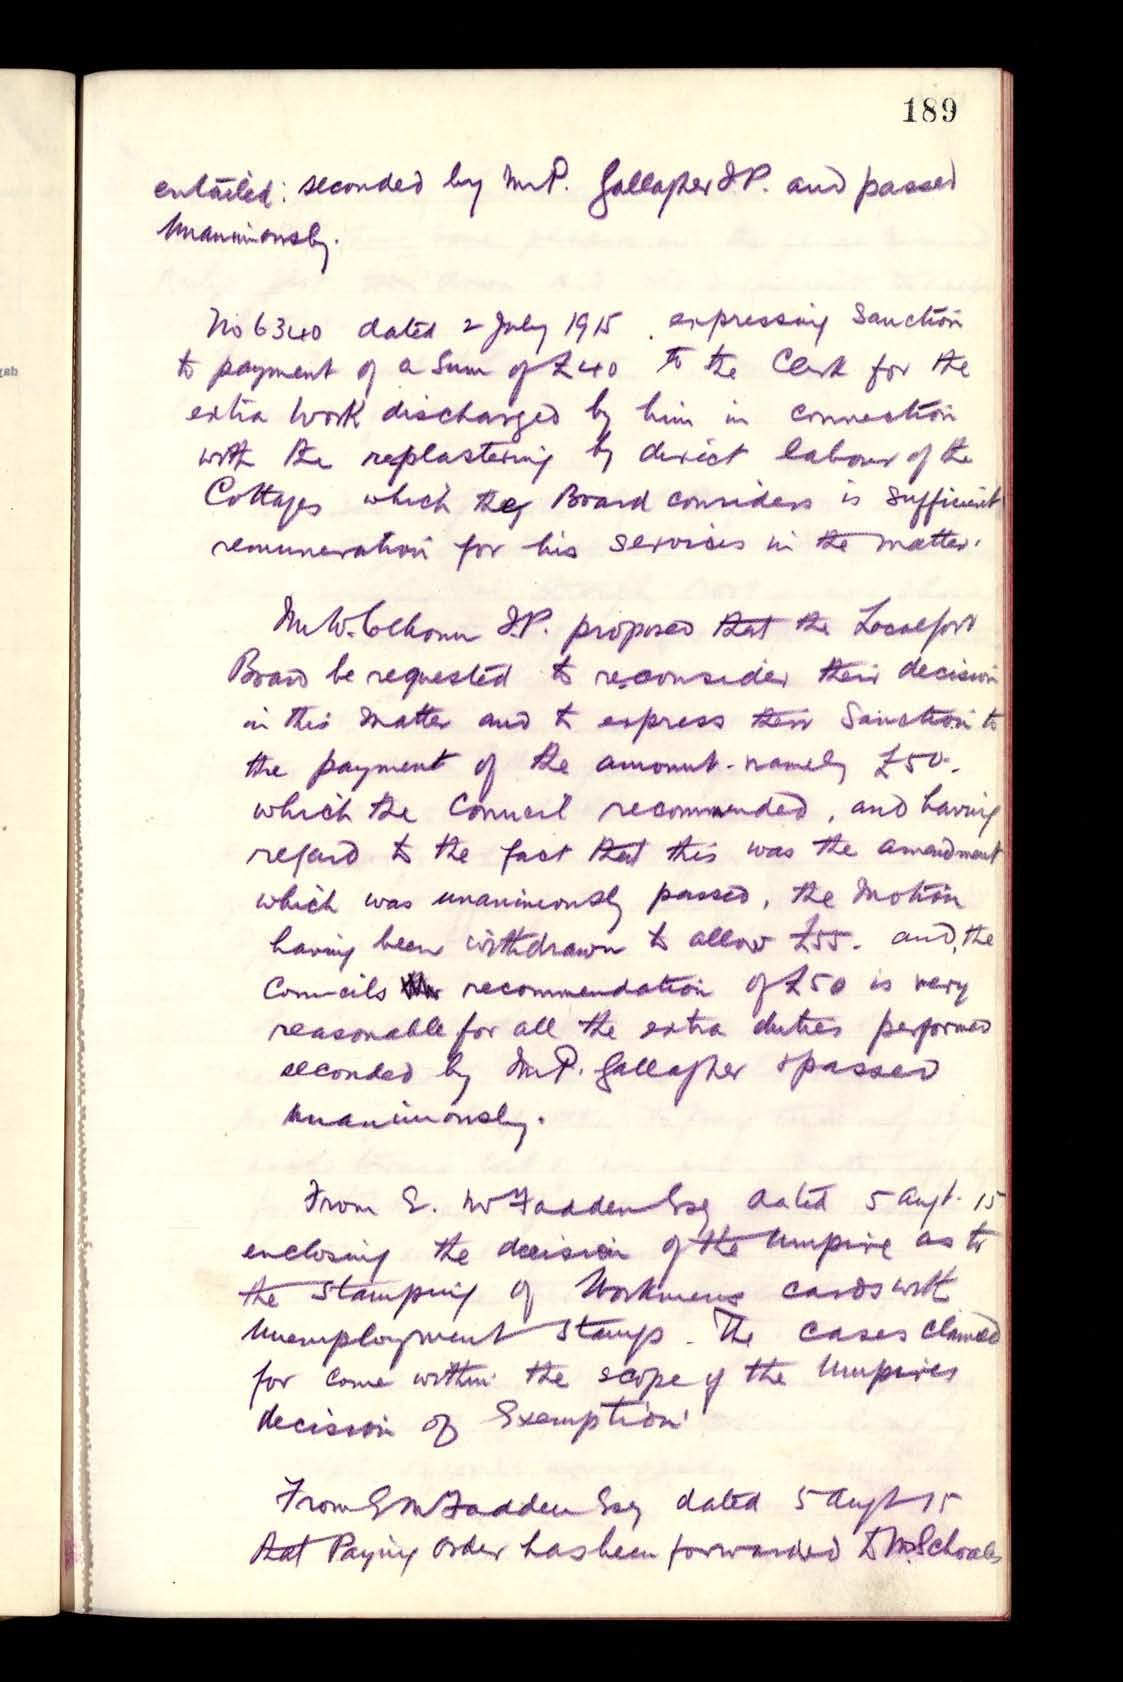 189
entailed: seconded by Mr P. Gallagher J.P. and passed
unanimously.
No 6340 dated 2 July 1915. expressing Sanction
to payment of a Sum of £40 to the Clerk for the
extra work discharged by him in connection
with the replastering by direct labour of the
Cottages which they Board considers is sufficient
remuneration for his services in the matter.
Mr W. Colhoun J.P. proposed that the Local Govt
Board be requested to reconsider their decision
in this matter and to express their Sanction to
the payment of the amount - namely £50 -
which the Council recommended, and having
regard to the fact that this was the amendment
which was unanimously passed, the Motion
having been withdrawn to allow £55. and, the
Councils recommendation of £50 is very
reasonable for all the extra duties performed
seconded by Mr P. Gallagher & passed
unanimously.
From E. McFadden Esq dated 5 Augt. 15
enclosing the decision of the Umpire as to
the stamping of Workmens cards with
Unemployment Stamps. The cases claimed
for come within the scope of the Umpires
decision of Exemption.
From E McFadden Esq dated 5 Augt 15
that Paying Order has been forwarded to Mr Scholes